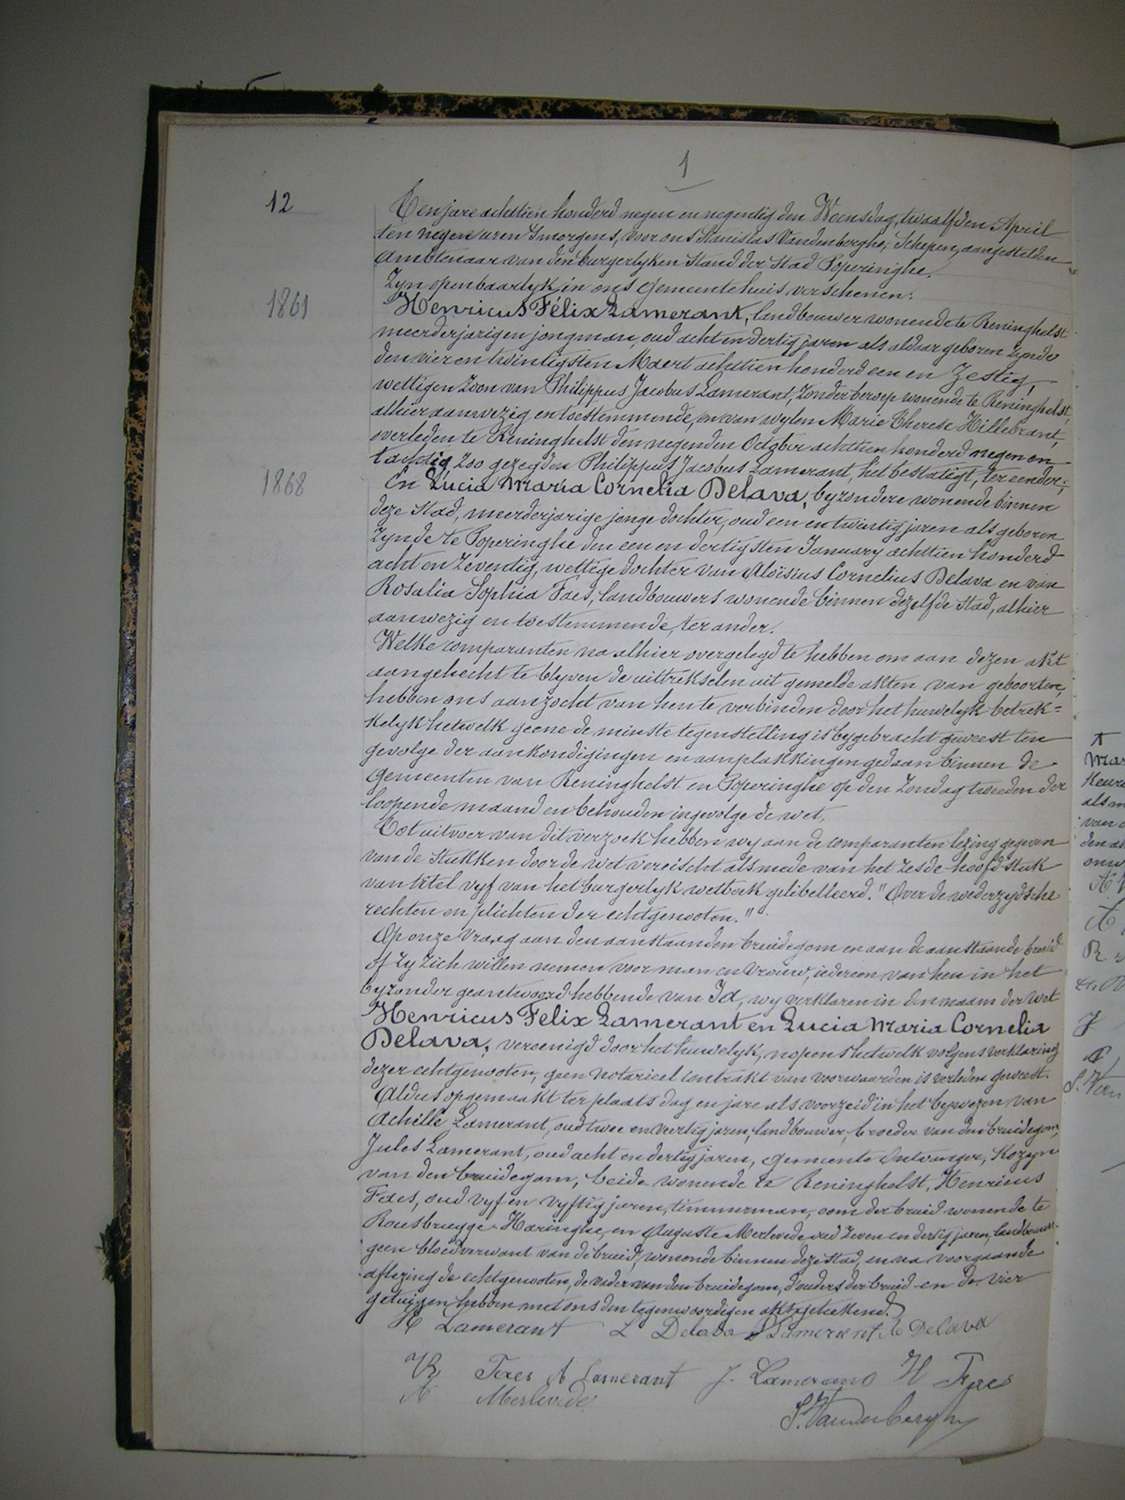 1
12
Ten jare achttien honderd negen en negentig den Woensdag, twaalfden April
ten negen uren smorgens, voor ons Stanislas Vandenberghe, Schepen, aangestelden
ambtenaar van den burgerlyken Stand der Stad Poperinghe.
Zyn openbaarlyk in ons gemeentehuis verschenen:
1861
Henricus Félix Lamerant, landbouwer wonende te Reninghelst
meerderjarigen jongman, oud acht en dertig jaren als aldaar geboren zynde
den vier en twintigsten Maert achttien honderd een en zestig,
wettigen zoon van Philippus Jacobus Lamerant, zonder beroep wonende te Reninghelst,
alhier aanwezig en toestemmende, en van wylen Marie Therese Hillebrant,
overleden te Reninghelst den negenden October achttien honderd negen en
tachtig zoo gezegden Philippus Jacobus Lamerant, het bestatigt, ter eender;
1868
En Lucia Maria Cornelia Delava, byzondere wonende binnen
deze Stad, meerderjarige jonge dochter, oud een en twintig jaren als geboren
zynde te Poperinghe den een en dertigsten January achttien honderd
acht en zeventig, wettige dochter van Aloïsius Cornelius Delava en van
Rosalia Sophia Faes, landbouwers wonende binnen dezelfde Stad, alhier
aanwezig en toestemmende, ter ander.
Welke comparanten na alhier overgelegd te hebben om aan dezen akt
aangehecht te blyven de uittrekselen uit gemelde akten van geboorten,
hebben ons aanzocht van hen te verbinden door het huwelyk betrek=
kelyk hetwelk geene de minste tegenstelling is bygebracht geweest ten
gevolge der aankondigingen en aanplakkingen gedaan binnen de
gemeenten van Reninghelst en Poperinghe op den Zondag tweeden der
loopende maand en behouden ingevolge de wet.
Tot uitvoer van dit verzoek hebben wy aan de comparanten lezing gegeven
van de stukken door de wet vereischt alsmede van het zesde hoofdstuk
van titel vyf van het burgerlyk wetboek gelibelleerd. "Over de wederzydsche
rechten en plichten der echtgenooten."
Op onze vraag aan den aanstaanden bruidegom en aan de aanstaande bruid
of zy zich willen nemen voor man en vrouw, iedereen van hen in het
byzonder geantwoord hebbende van Ja, wy verklaren in den naam der wet
Henricus Felix Lamerant en Lucia Maria Cornelia
Delava, vereenigd door het huwelyk, nopens hetwelk volgens verklaring
dezer echtgenooten, geen notarieel contrakt van voorwaarden is verleden geweest.
Aldus opgemaakt ter plaats dag en jare als voorzeid in het bywezen van
Achille Lamerant, oud twee en veertig jaren, landbouwer, broeder van den bruidegom,
Jules Lamerant, oud acht en dertig jaren, gemeente Ontvanger, Kozyn
van den bruidegom, beide wonende te Reninghelst, Henricus
Faes, oud vyf en vyftig jaren, timmerman, oom der bruid wonende te
Rousbrugge-Haringhe, en Auguste Merlevede oud zeven en dertig jaren, landbouwer
geen bloedverwant van de bruid, wonende binnen deze stad, en na voorgaande
aflezing de echtgenooten, de vader van den bruidegom, d'ouders der bruid en de vier
getuigen hebben met ons den tegenwoordigen akt geteekend.
H Lamerant L Delava P Lamerant A Delava
R Faes A Lamerant J. Lamerant H Faes
A Merlevede
S. Vandenberghe